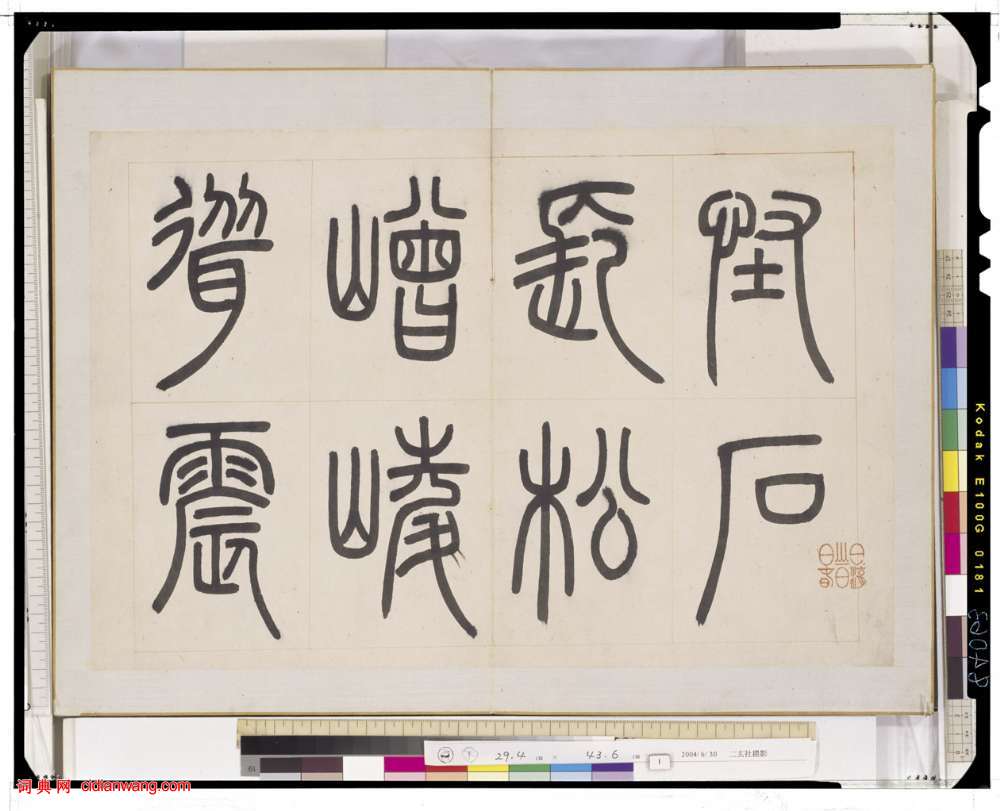 怪石
長松
嶒崚
震
Kodak E100G 0181
29.4 × 43.6
1
2004/6/30 二玄社撮影
词典网 cidianwang.com